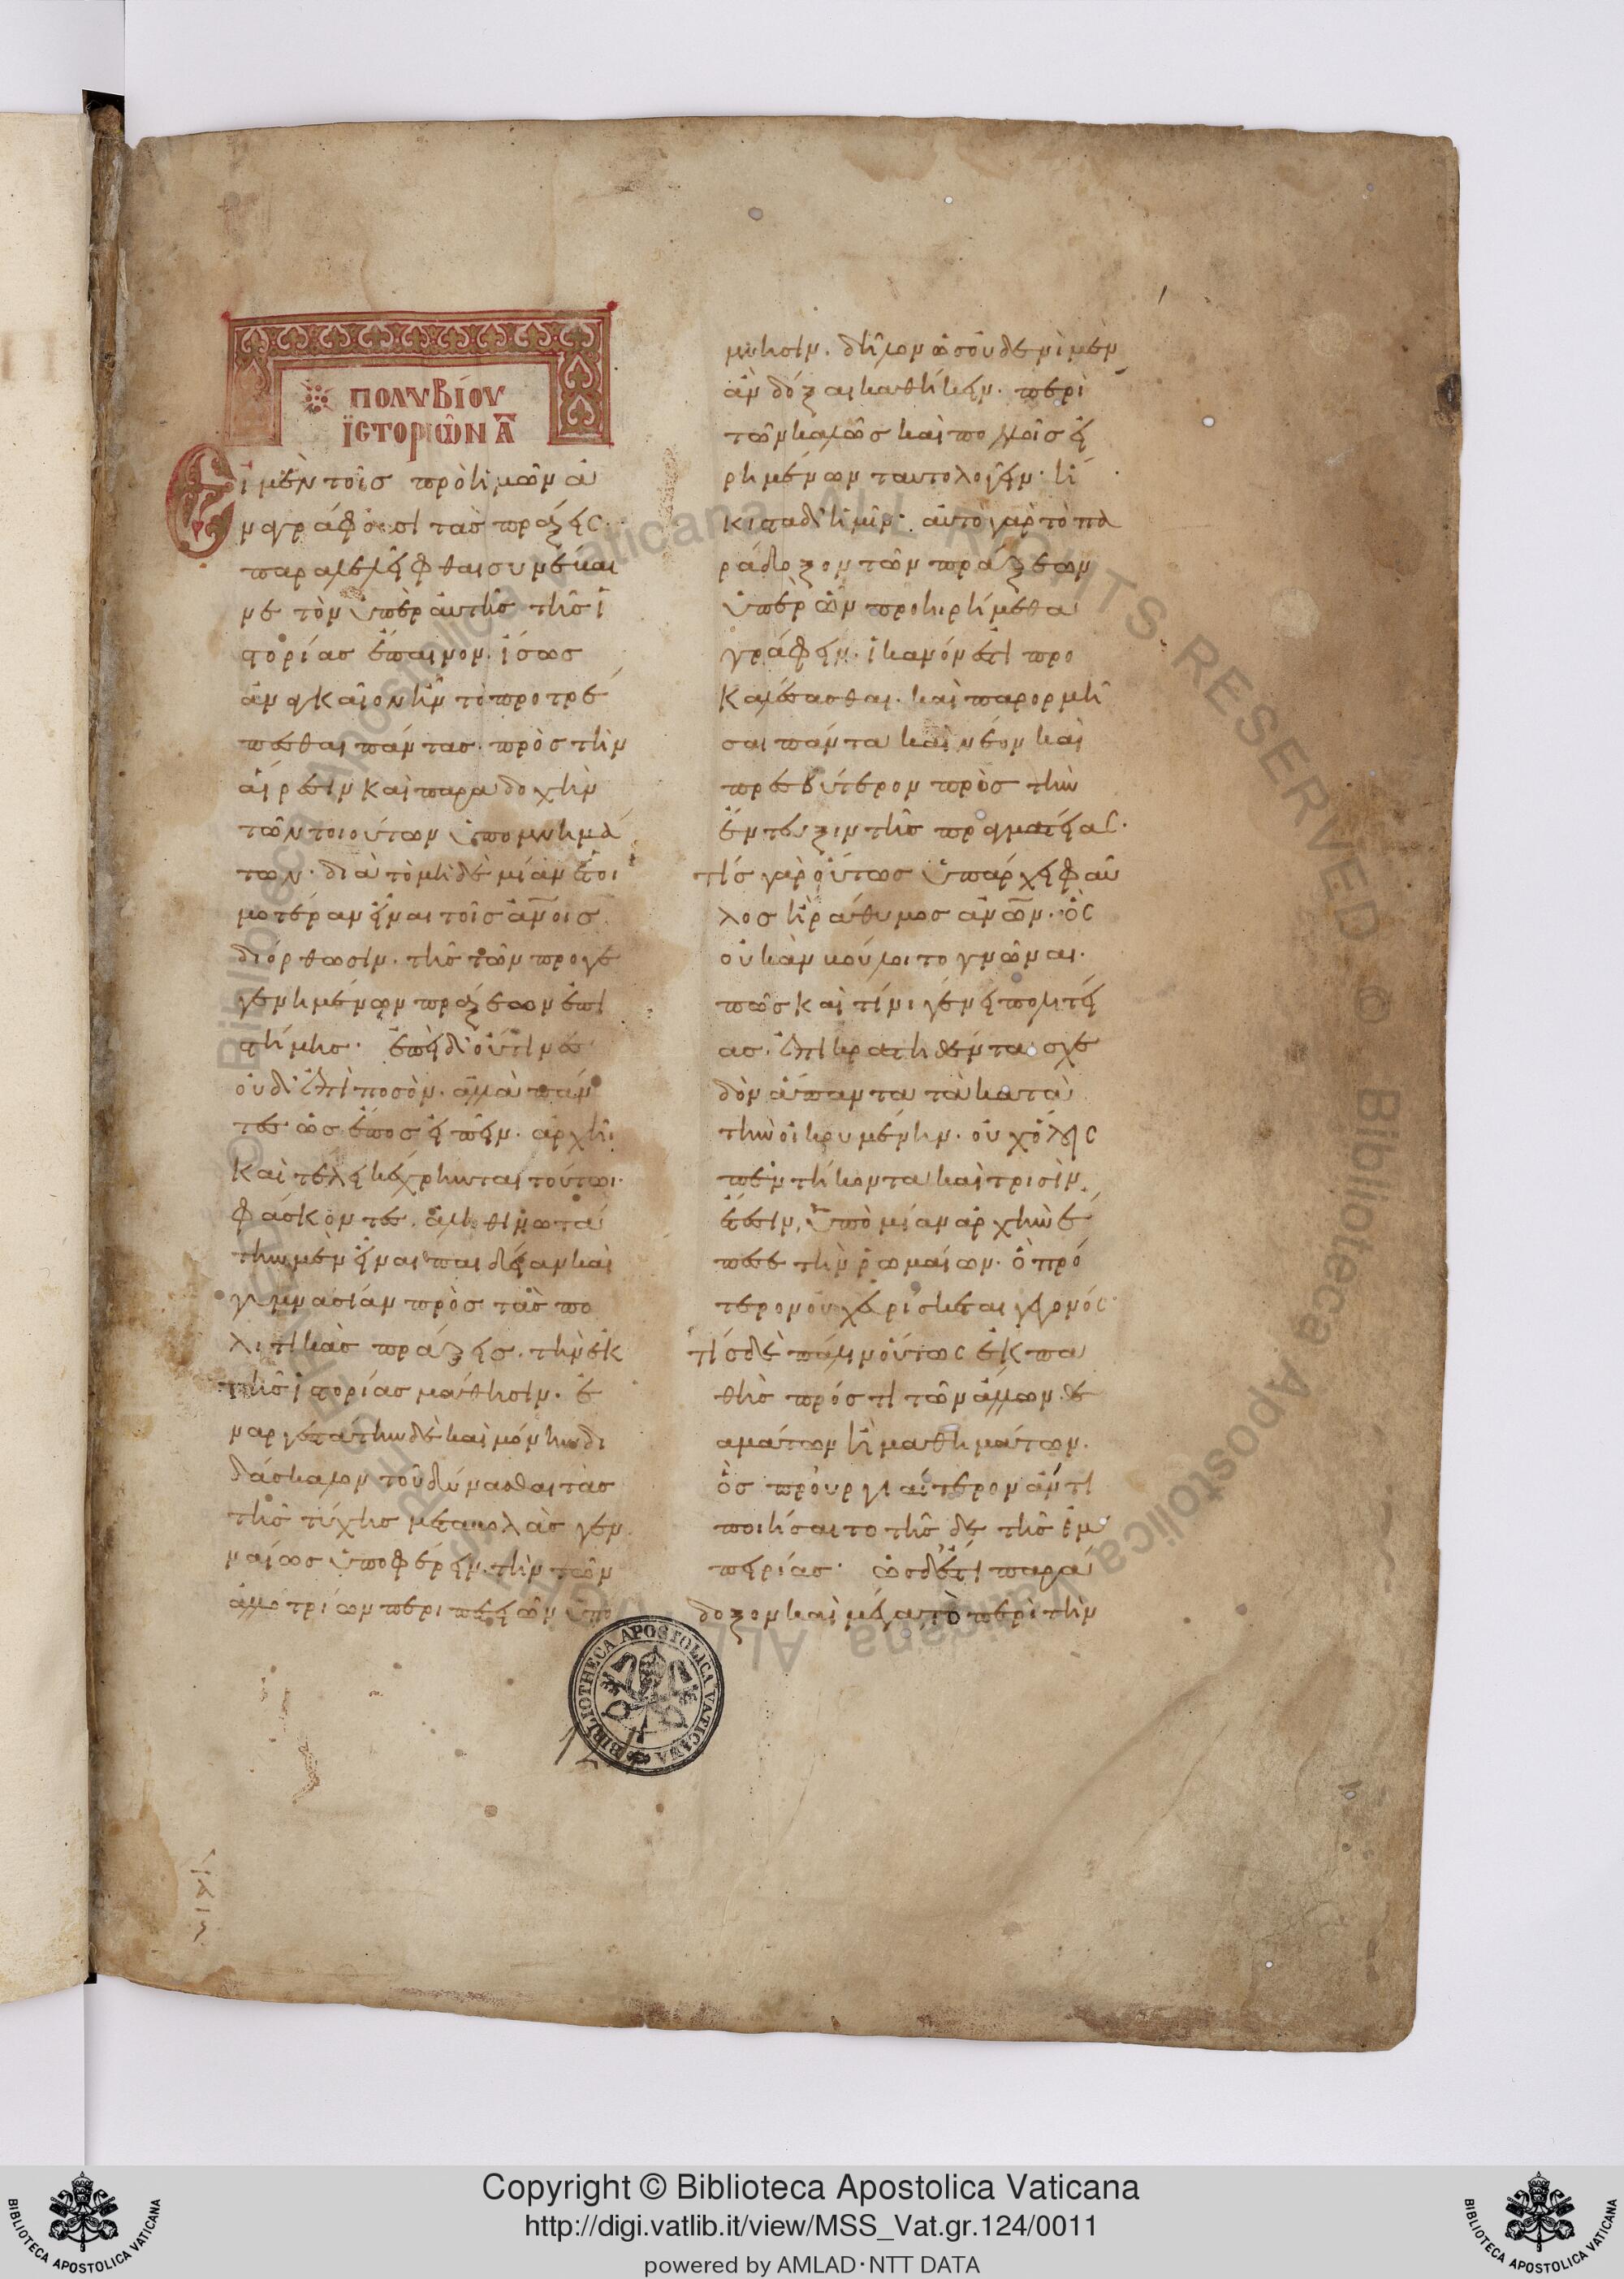 ΠΟΛΥΒΊΟΥ
ἹΣΤΟΡΙῶΝ Α
Εἰ μὲν τοῖσ πρὸ ἡμῶν ἀ
ναγράφουσι τὰσ πράξεις
παραλελεῖφθαι συνέβαι
νε τὸν ὑπὲρ αὐτῆσ τῆσ ἱ
στορίασ ἔπαινον. ἴσωσ
ἀναγκαῖον ἦν τὸ προτρέ
πεσθαι πάντασ. πρὸσ τὴν
αἵρεσιν καὶ παραδοχὴν
τῶν τοιούτων ὑπομνημά
των. διὰ τὸ μηδεμίαν ἑτοι
μοτέραν εἶναι τοῖσ ἀνοισ
διόρθωσιν. τῆσ τῶν προγε
γενημένων πράξεων ἐπι
στήμησ. ἐπεὶ δ' οὔ τινεσ
οὐδ' ἐπὶ ποσὸν. ἀλλὰ πάν
τεσ ὡσ ἔποσ εἰπεῖν. ἀρχῆι
καὶ τέλει κέχρηνται τούτωι.
φάσκοντεσ. ἀληθινωτά
την μὲν εἶναι παιδείαν καὶ
γυμνασίαν πρὸσ τὰσ πο
λιτικὰσ πράξεισ. τὴν ἐκ
τῆσ ἱστορίασ μάθησιν. ἐ
ναργεστάτην δὲ καὶ μόνην δι
δάσκαλον τοῦ δύνασθαι τὰσ
τῆσ τύχησ μεταβολὰσ γεν
ναίωσ ὑποφέρειν. τὴν τῶν
ἀλλοτρίων περιπετειῶν ὑπό
μνησιν. δῆλον ὡσ οὐδενὶ μὲν
ἂν δόξαι καθήκειν. περὶ
τῶν καλῶσ καὶ πολλοῖσ εἰ
ρημένων ταυτολογεῖν. ἥ
κιστα δ' ἡμῖν. αὐτὸ γὰρ τὸ πα
ράδοξον τῶν πράξεων
ὑπὲρ ὧν προηιρήμεθα
γράφειν. ἱκανόν ἐστι προ
καλέσασθαι. καὶ παρορμῆ
σαι πάντα καὶ νέον καὶ
πρεσβύτερον πρὸσ τὴν
ἔντευξιν τῆσ πραγματείας.
τίσ γὰρ οὕτωσ ὑπάρχει φαῦ
λοσ ἢ ῥάθυμοσ ἀνων. ὃς
οὐκ ἂν βούλοιτο γνῶναι.
πῶσ καὶ τίνι γένει πολιτεί
ασ. ἐπικρατηθέντα σχε
δὸν ἅπαντα τὰ κατὰ
τὴν οἰκουμένην. οὐχ ὅλοις
πεντήκοντα καὶ τρισὶν
ἔτεσιν, ὑπὸ μίαν ἀρχὴν ἔ
πεσε τὴν ῥωμαίων. ὃ πρό
τερον οὐχ εὑρίσκεται γεγονός.
τίσ δὲ πάλιν οὕτως ἐκπα
θὴσ πρόσ τι τῶν ἄλλων θε
αμάτων ἢ μαθημάτων.
ὃσ προυργιαίτερον ἄν τι
ποιήσαιτο τῆσδε τῆσ ἐμ
πειρίασ. ὡσ δ' ἐστὶ παρά
δοξον καὶ μέγα τὸ περὶ τὴν
BIBLIOTHECA APOSTOLICA VATICANA
Copyright © Biblioteca Apostolica Vaticana
http://digi.vatlib.it/view/MSS_Vat.gr.124/0011
powered by AMLAD·NTT DATA